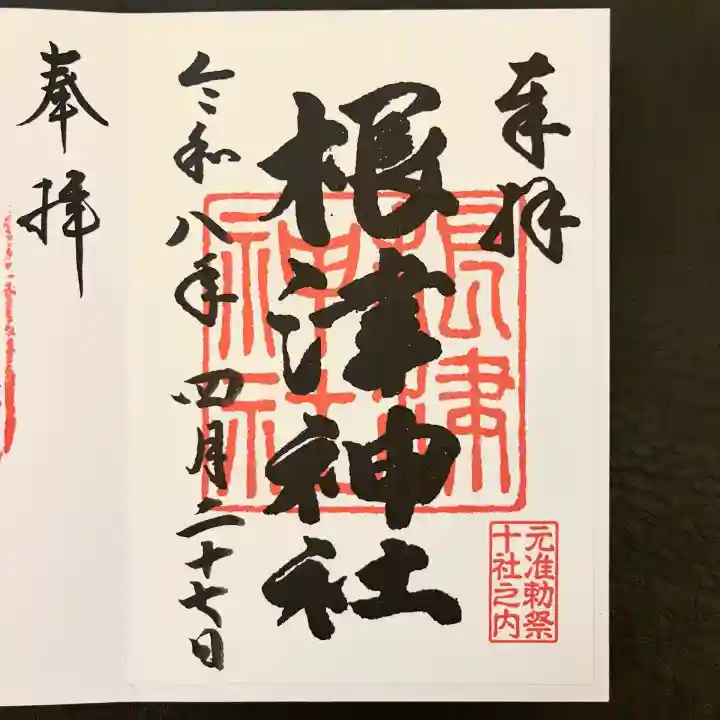 奉拝
根津神社
令和八年四月二十七日
根津神社
元准勅祭
十社之内
奉拝